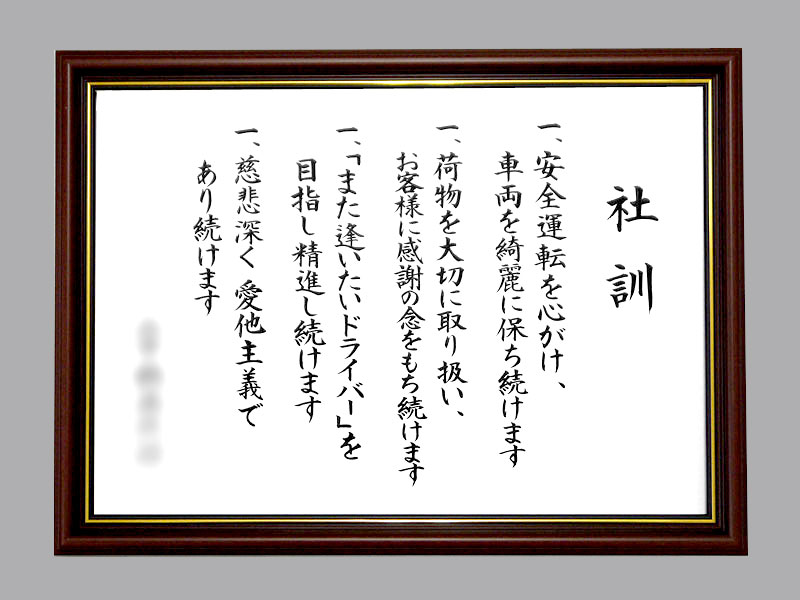 社訓
一、安全運転を心がけ、
車両を綺麗に保ち続けます
一、荷物を大切に取り扱い、
お客様に感謝の念をもち続けます
一、「また逢いたいドライバー」を
目指し精進し続けます
一、慈悲深く愛他主義で
あり続けます